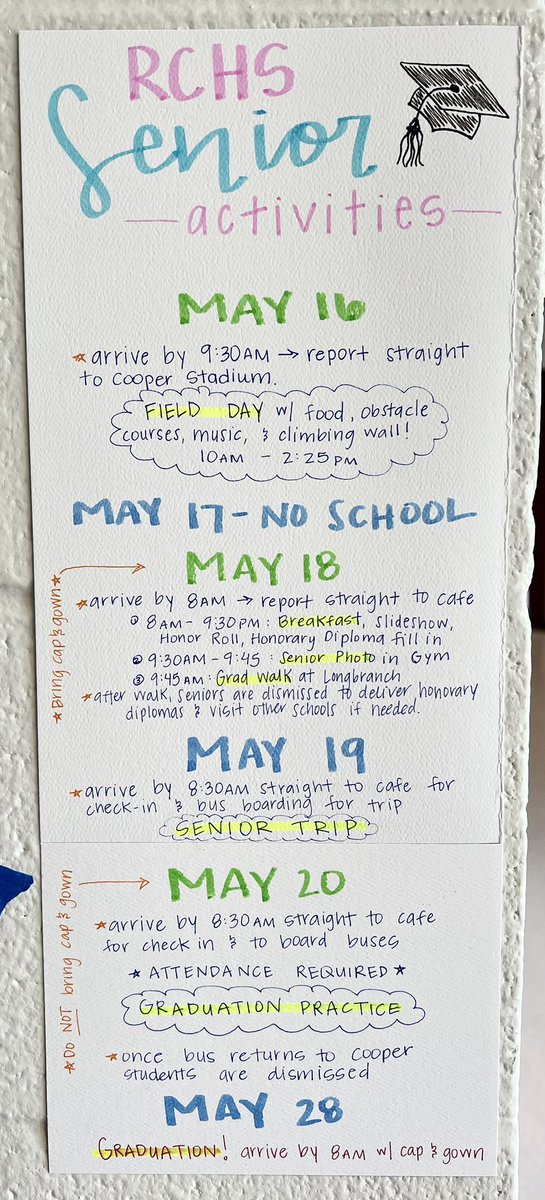 RCHS
Senior
-activities-
MAY 16
☆arrive by 9:30AM → report straight
to Cooper Stadium.
FIELD DAY w/ food, obstacle
courses, music, & climbing wall!
10AM - 2:25PM
MAY 17 - NO SCHOOL
MAY 18
☆Bring cap & gown☆
☆arrive by 8AM → report straight to cafe
① 8AM - 9:30PM : Breakfast, Slideshow,
Honor Roll, Honorary Diploma fill in
② 9:30AM - 9:45 : Senior Photo in Gym
③ 9:45AM : Grad Walk at Longbranch
☆after walk, seniors are dismissed to deliver honorary
diplomas & visit other schools if needed.
MAY 19
☆arrive by 8:30AM straight to cafe for
check-in & bus boarding for trip
SENIOR TRIP
MAY 20
☆DO NOT bring cap & gown
☆arrive by 8:30AM straight to cafe
for check in & to board buses
★ ATTENDANCE REQUIRED ★
GRADUATION PRACTICE
☆once bus returns to Cooper
students are dismissed
MAY 28
GRADUATION! arrive by 8AM w/ cap & gown